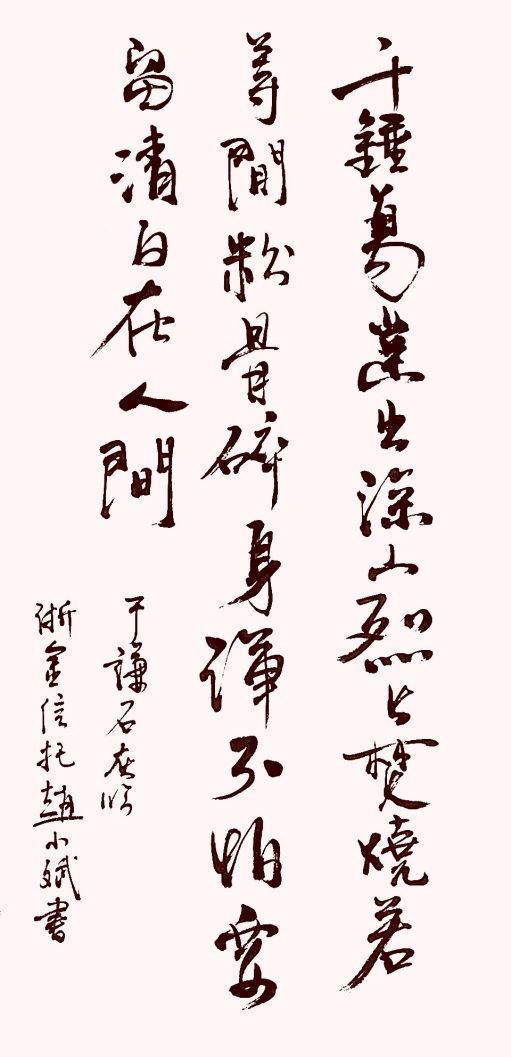 千錘萬凿出深山烈火焚燒若
等間粉骨碎身渾不怕要
留清白在人間
于謙石灰吟
浙金信托趙小斌書